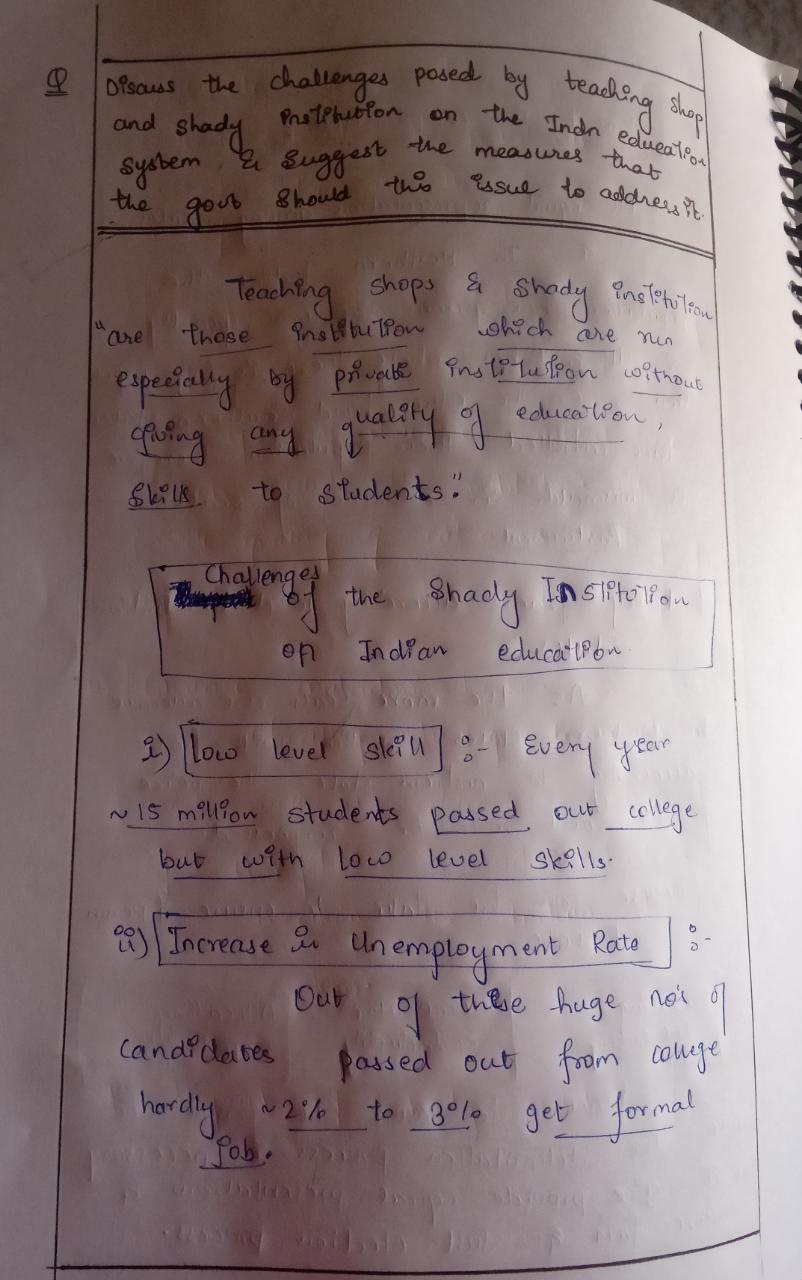 Q Discuss the challenges posed by teaching shop
and shady institution on the Indn education
system & suggest the measures that
the govt should this issue to address it.
Teaching shops & shady institution
"are those institution which are run
especially by private institution without
giving any quality of education,
skills to students."
Challenges of the Shady Institution
on Indian education
i) Low level skill :- Every year
~15 million students passed out college
but with low level skills.
ii) Increase in Unemployment Rate :-
Out of these huge no's of
candidates passed out from college
hardly ~2% to 3% get formal
job.